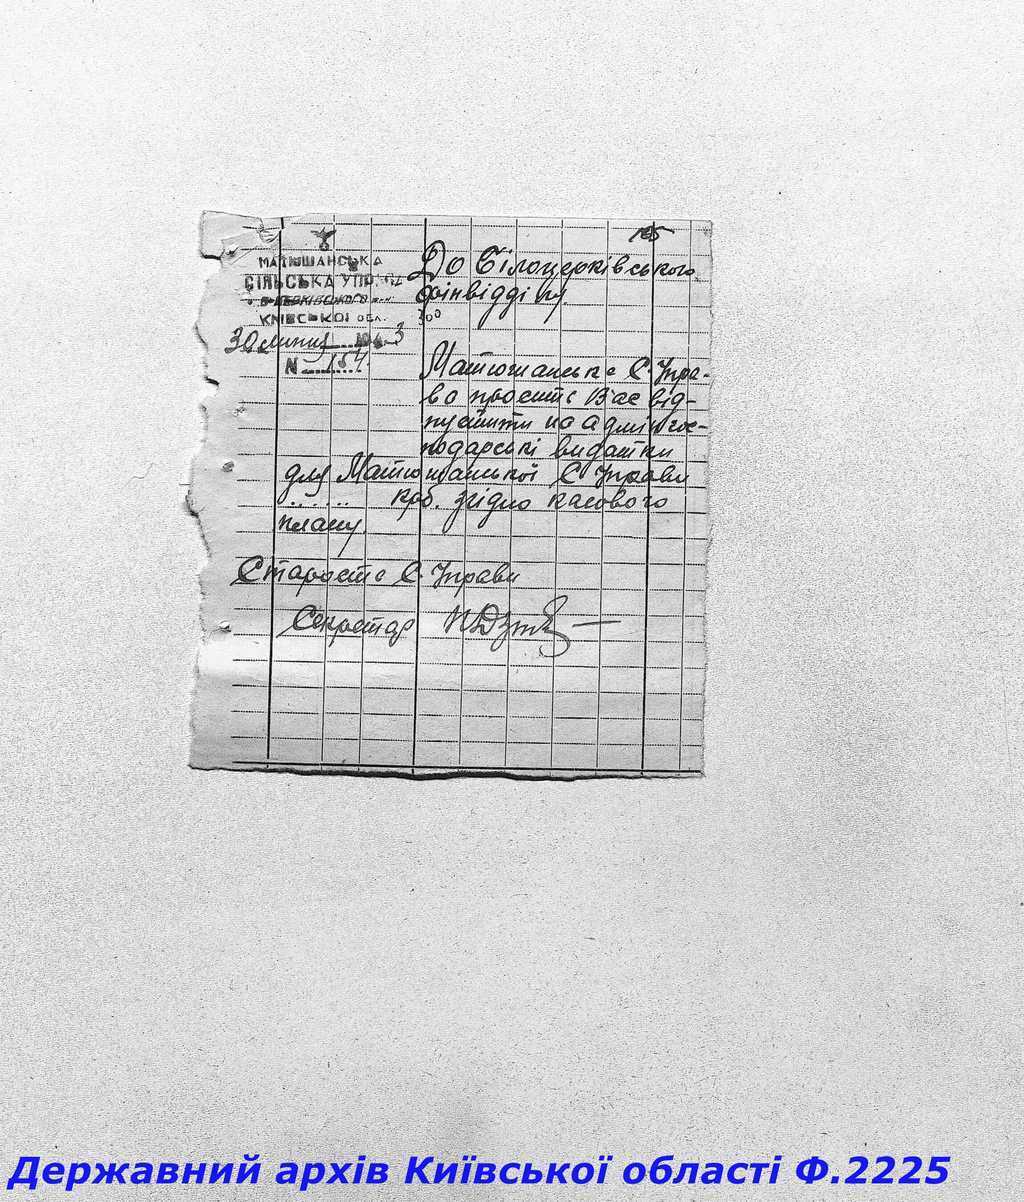 165
МАТЮШАНСЬКА
СІЛЬСЬКА УПРАВА
Б-ЦЕРКІВСЬКОГО
КИЇВСЬКОЇ ОБЛ.
30 липня 1943
N 154.
До Білоцерківського
фінвідділу.
Матюшанська С. Упра-
ва просить Вас від-
пустити на адмінгос-
подарські видатки
для Матюшанської С Управи
...... крб. згідно касового
плану.
Староста С. Управи
Секретар
Державний архів Київської області Ф.2225